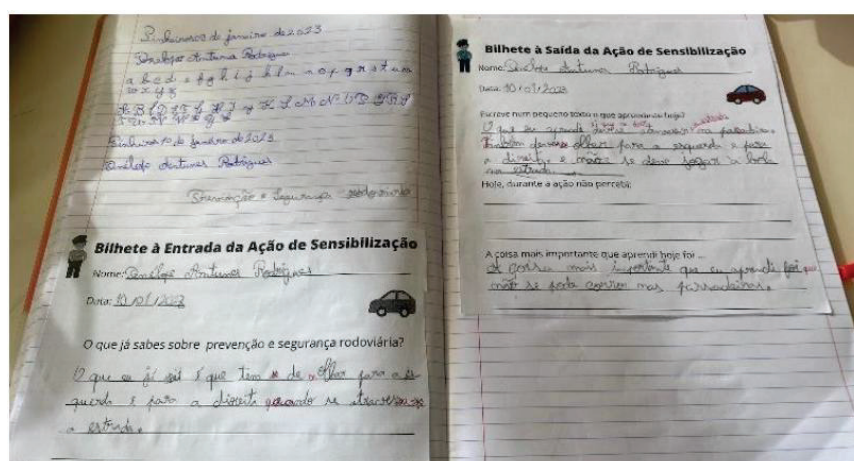 Pinheiros de janeiro de 2023
Penélope Antunes Rodrigues
a b c d e f g h i j k l m n o p q r s t u v
w x y z
Pinheiros 10 de janeiro de 2023
Penélope Antunes Rodrigues
Prevenção e Segurança rodoviária
Bilhete à Entrada da Ação de Sensibilização
Nome: Penélope Antunes Rodrigues
Data: 10/01/2023
O que já sabes sobre prevenção e segurança rodoviária?
O que eu já sei é que tem de olhar para a es
querda e para a direita quando se atravessa
a estrada.
Bilhete à Saída da Ação de Sensibilização
Nome: Penélope Antunes Rodrigues
Data: 10/01/2023
Escreve num pequeno texto o que aprendeste hoje?
O que eu aprendi atravessar na passadeira.
Também devesse olhar para a esquerda e para
a direita, e não se deve jogar a bola
na estrada.
Hoje, durante a ação não percebi:
A coisa mais importante que aprendi hoje foi ...
A coisa mais importante que eu aprendi foi que
não se pode correr nas passadeiras.